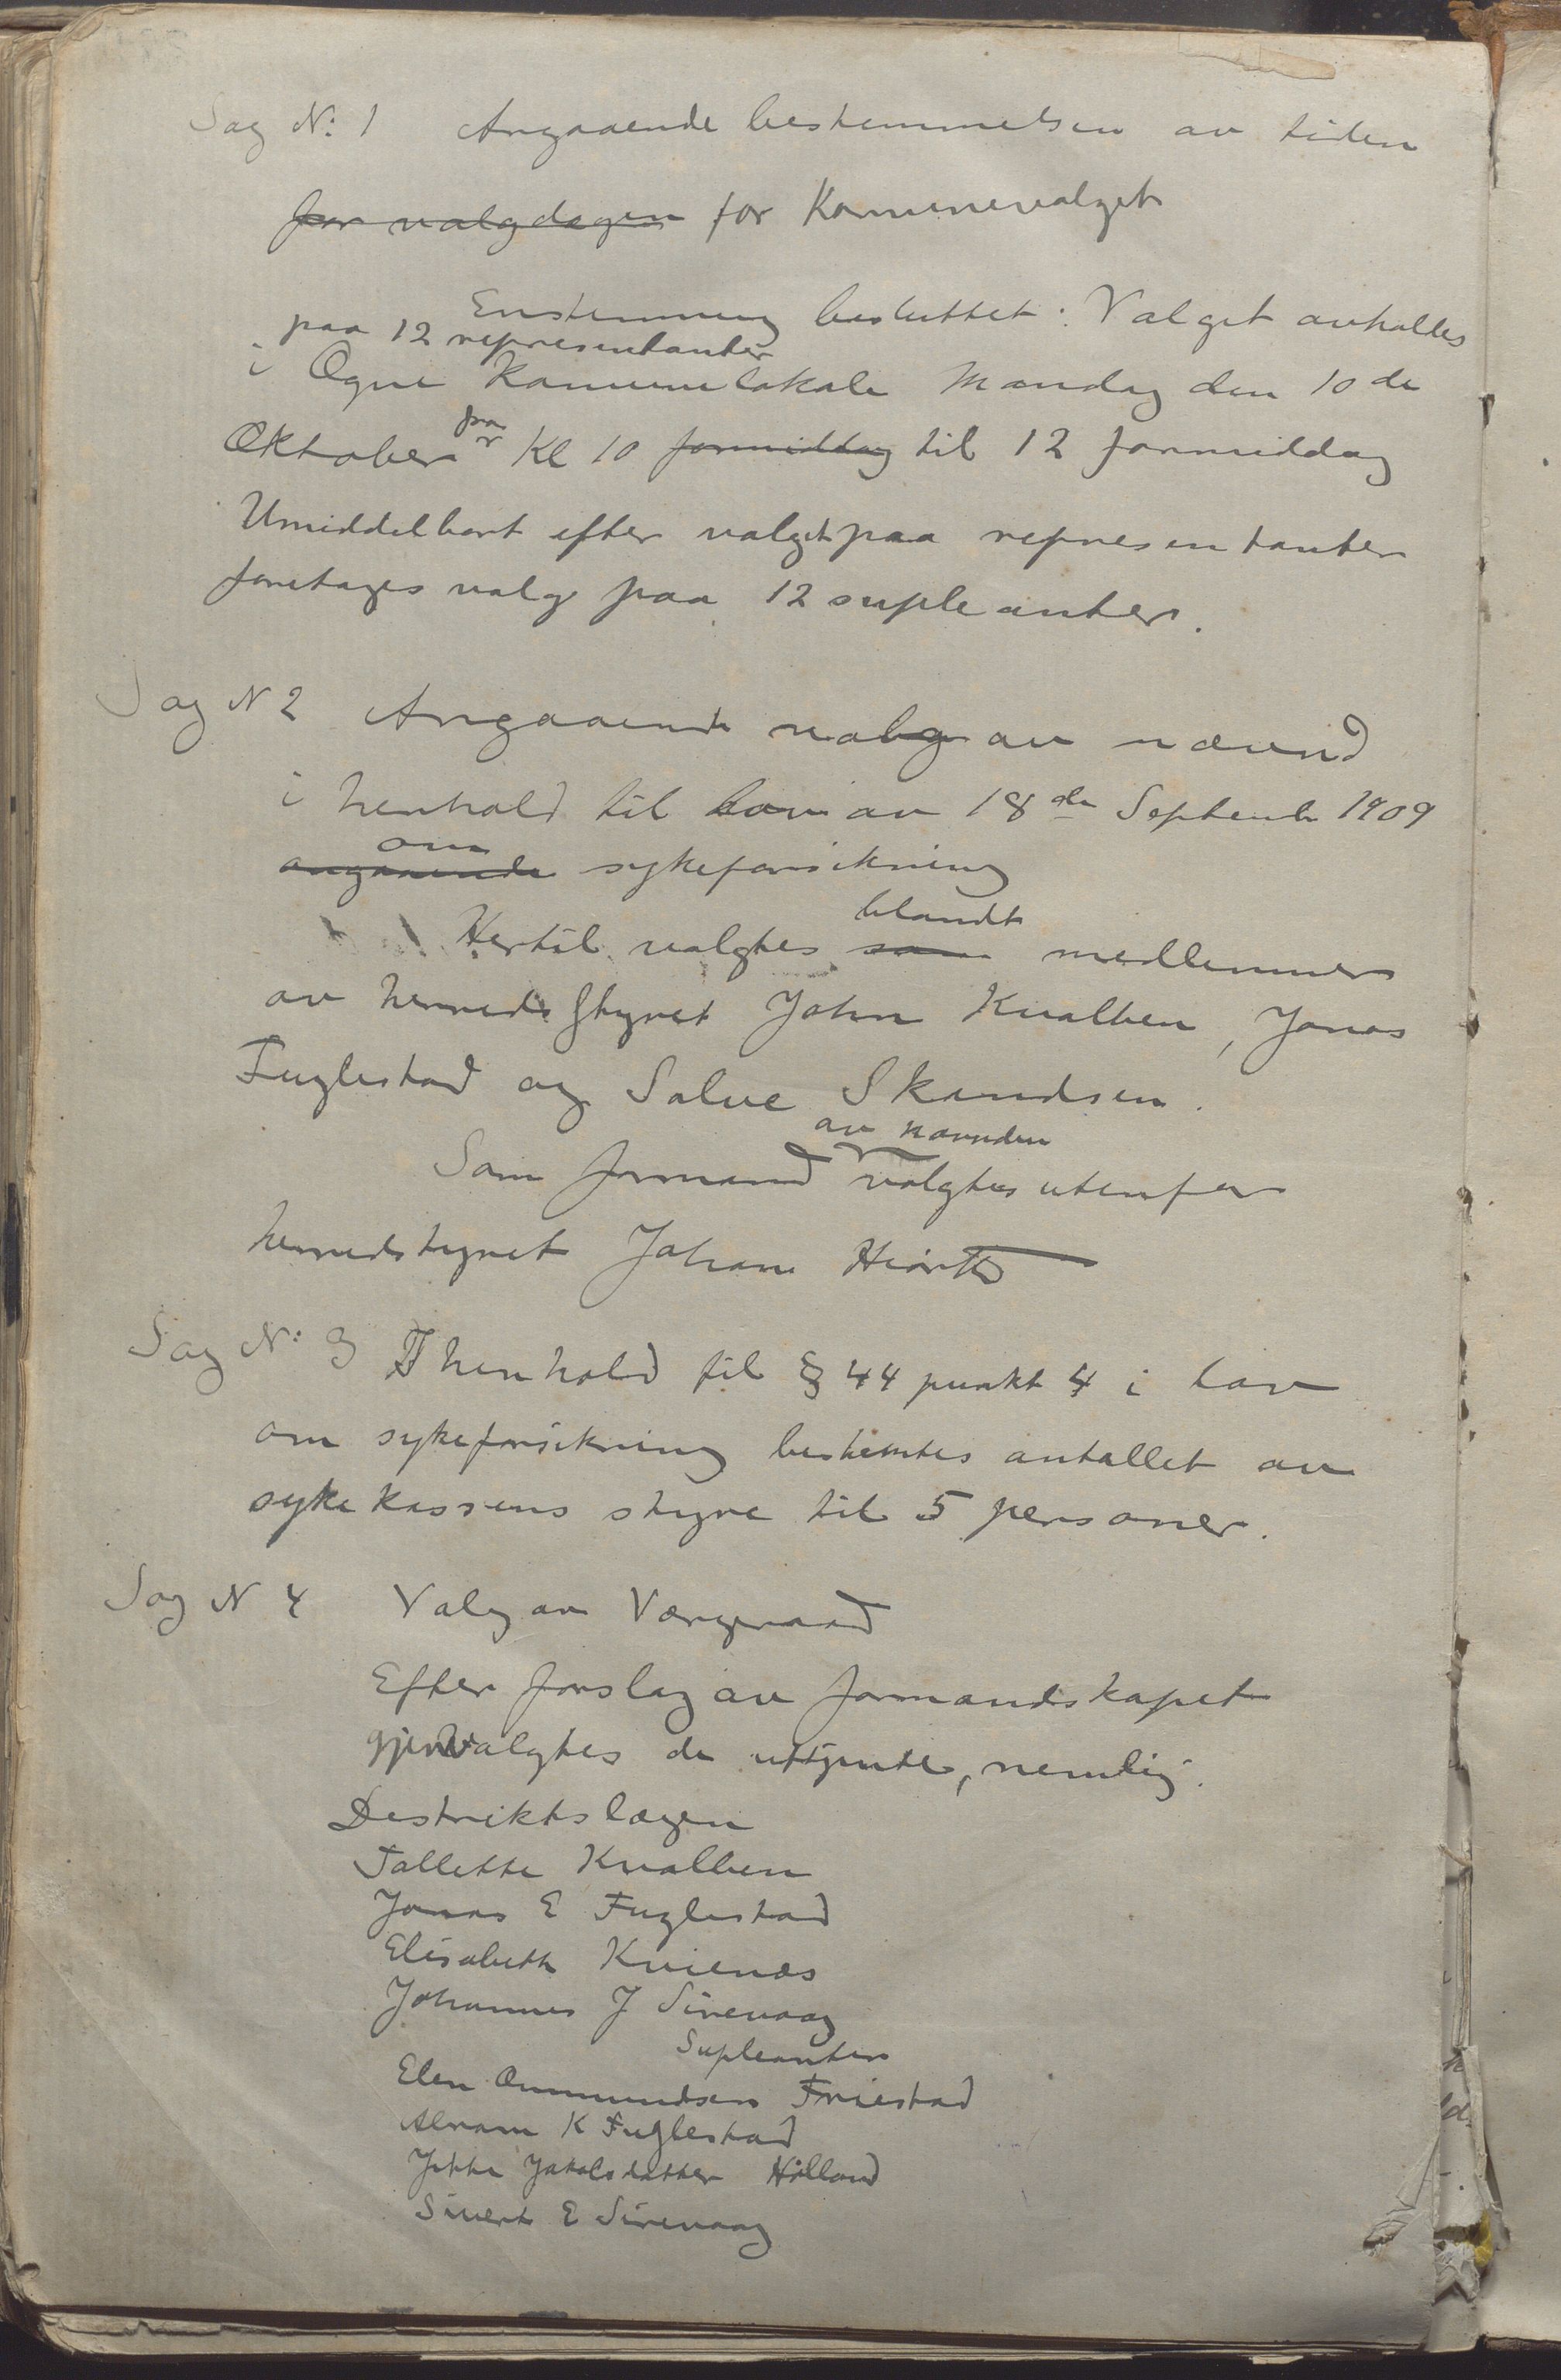 Sag N: 1 Angaaende bestemmelsen av tiden
for valgdagen for Kommunevalget
Enstemmig besluttet: Valget avholdes
paa 12 representanter
i Ogne Kommunelokale Mandag den 10de
Oktober fra Kl 10 formiddag til 12 formiddag
Umiddelbart efter valget paa representanter
foretages valg paa 12 supleanter.
Sag N 2 Angaaende valg av nævnd
i henhold til lov av 18de Septemb 1909
om
angaaende sykeforsikning
blandt
Hertil valgtes som medlemmer
av herredsstyret John Kvalben, Jonas
Fuglestad og Salve Skandsen.
av nævnden
Som formand valgtes utenfor
herredstyret Johan Hiorth
Sag N: 3 I henhold til § 44 punkt 4 i lov
om sykeforsikning bestemtes antallet av
sykekassens styre til 5 personer.
Sag N 4 Valg av Værgeraad
Efter forslag av formandskapet
gjenvalgtes de uttjente, nemlig.
Destriktslægen
Tallette Kvalben
Jonas E Fuglestad
Elisabeth Kvienæs
Johannes J Sirevaag
Supleanter
Elen Ommundsen Friestad
Abram K Fuglestad
Jakobsdatter Hölland
Sivert E Sirevaag